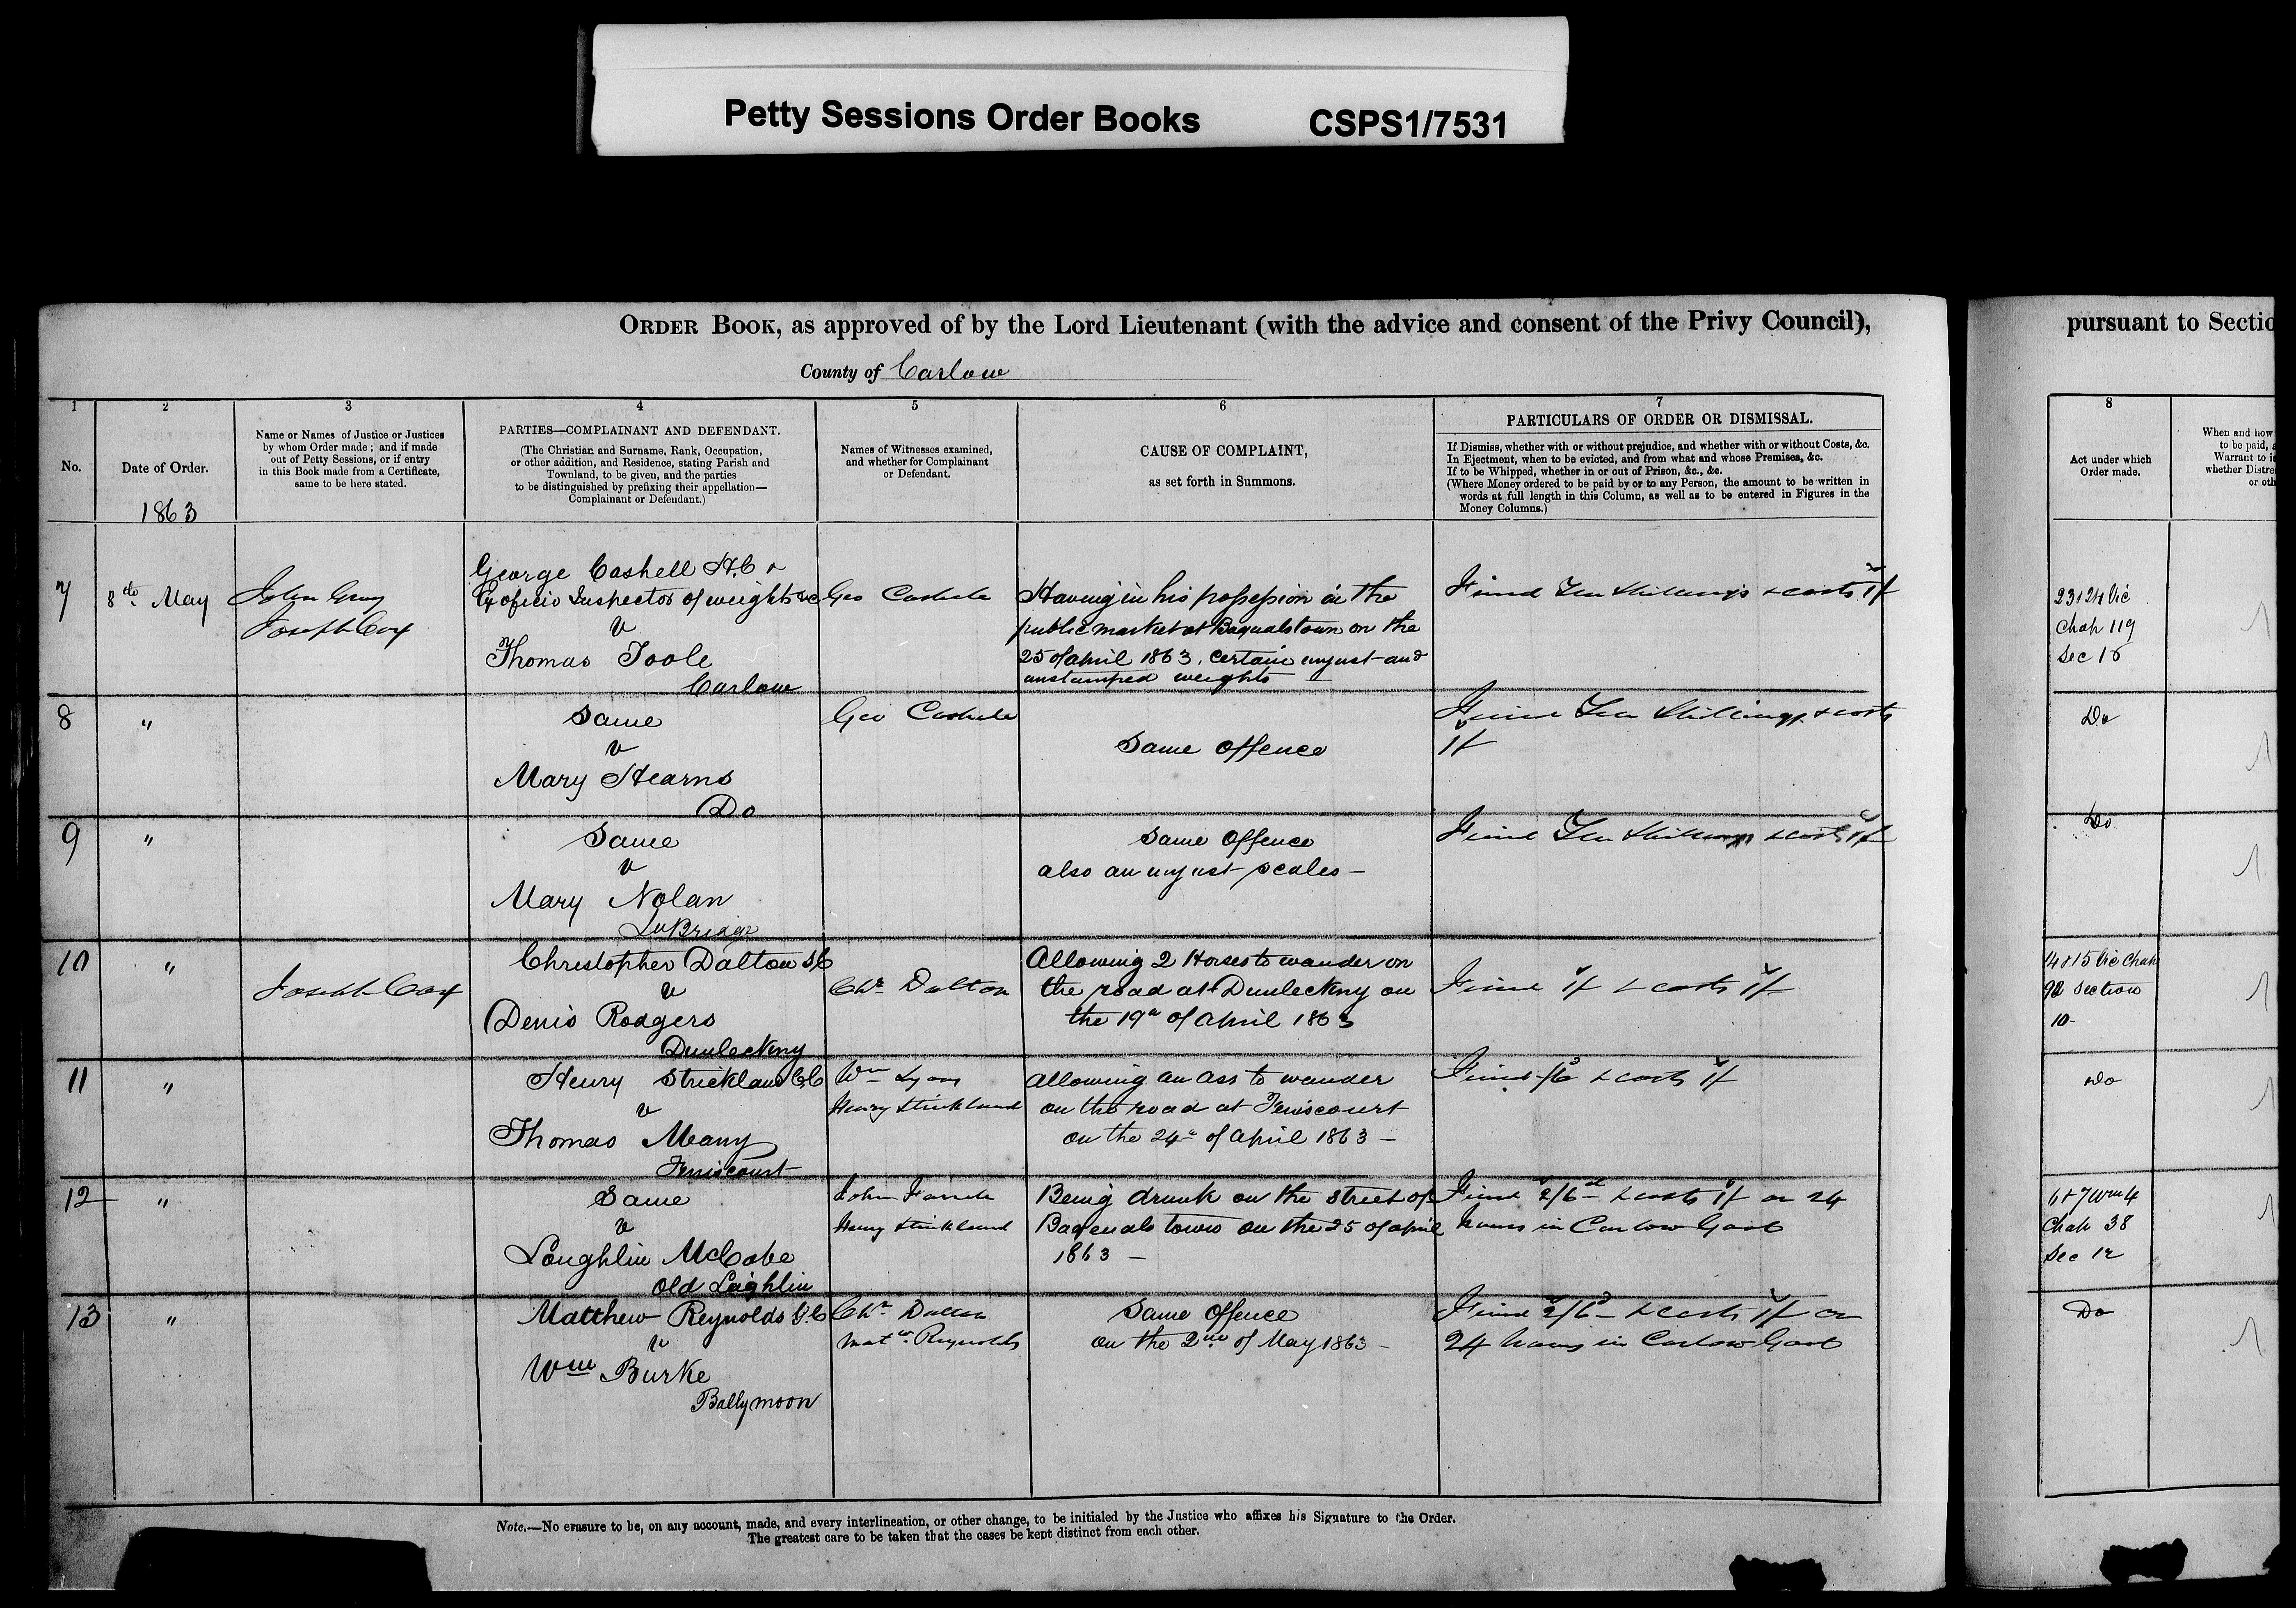 Petty Sessions Order Books CSPS1/7531
ORDER BOOK, as approved of by the Lord Lieutenant (with the advice and consent of the Privy Council),
pursuant to Sectio
County of Carlow
1
2
3
4
5
6
7
8
No.
Date of Order.
1863
Name or Names of Justice or Justices
by whom Order made; and if made
out of Petty Sessions, or if entry
in this Book made from a Certificate,
same to be here stated.
PARTIES—COMPLAINANT AND DEFENDANT.
(The Christian and Surname, Rank, Occupation,
or other addition, and Residence, stating Parish and
Townland, to be given, and the parties
to be distinguished by prefixing their appellation—
Complainant or Defendant.)
Names of Witnesses examined,
and whether for Complainant
or Defendant.
CAUSE OF COMPLAINT,
as set forth in Summons.
PARTICULARS OF ORDER OR DISMISSAL.
If Dismiss, whether with or without prejudice, and whether with or without Costs, &c.
In Ejectment, when to be evicted, and from what and whose Premises, &c.
If to be Whipped, whether in or out of Prison, &c., &c.
(Where Money ordered to be paid by or to any Person, the amount to be written in
words at full length in this Column, as well as to be entered in Figures in the
Money Columns.)
Act under which
Order made.
When and how
to be paid, a
Warrant to i
whether Distre
or oth
7
8th May
John Gray
Joseph Cox
George Cashell H.C &
Ex oficio Inspector of weights &c
v
Thomas Toole
Carlow
Geo Cashele
Having in his possession in the
public market at Bagnalstown on the
25 of april 1863, certain unjust and
unstamped weights
Fined Ten Shillings & costs 1/
23 & 24 Vic
Chap 119
Sec 16
8
"
Same
v
Mary Hearns
Do
Geo Cashele
Same offence
Fined Ten Shillings & costs
1/
Do
9
"
Same
v
Mary Nolan
LuBridge
Same offence
also an unjust scales —
Fined Ten Shillings & costs 1/
Do
10
"
Joseph Cox
Christopher Dalton S.C
v
Denis Rodgers
Dunleckny
Chr Dalton
Allowing 2 Horses to wander on
the road at Dunleckny on
the 19th of april 1863
Fined 1/ & costs 1/
14 & 15 Vic Chap
92 Section
10-
11
"
Henry Strickland C.C
v
Thomas Meany
Feniscourt
Wm Lyons
Henry Strickland
allowing an ass to wander
on the road at Feniscourt
on the 24th of april 1863 —
Fined -/6 & costs 1/
Do
12
"
Same
v
Loughlin McCabe
Old Laighlin
John
Henry Strickland
Being drunk on the street of
Bagenalstown on the 25 of april
1863 —
Fined 2/6d & costs 1/ or 24
hours in Carlow Gaol
6 & 7 Wm 4
Chap 38
Sec 12
13
"
Matthew Reynolds
v
Wm Burke
Ballymoon
Chr Dalton
Matw Reynolds
Same Offence
on the 2nd of May 1863 —
Fined 2/6 & costs 1/ or
24 hours in Carlow Gaol
Do
Note.—No erasure to be, on any account, made, and every interlineation, or other change, to be initialed by the Justice who affixes his Signature to the Order.
The greatest care to be taken that the cases be kept distinct from each other.